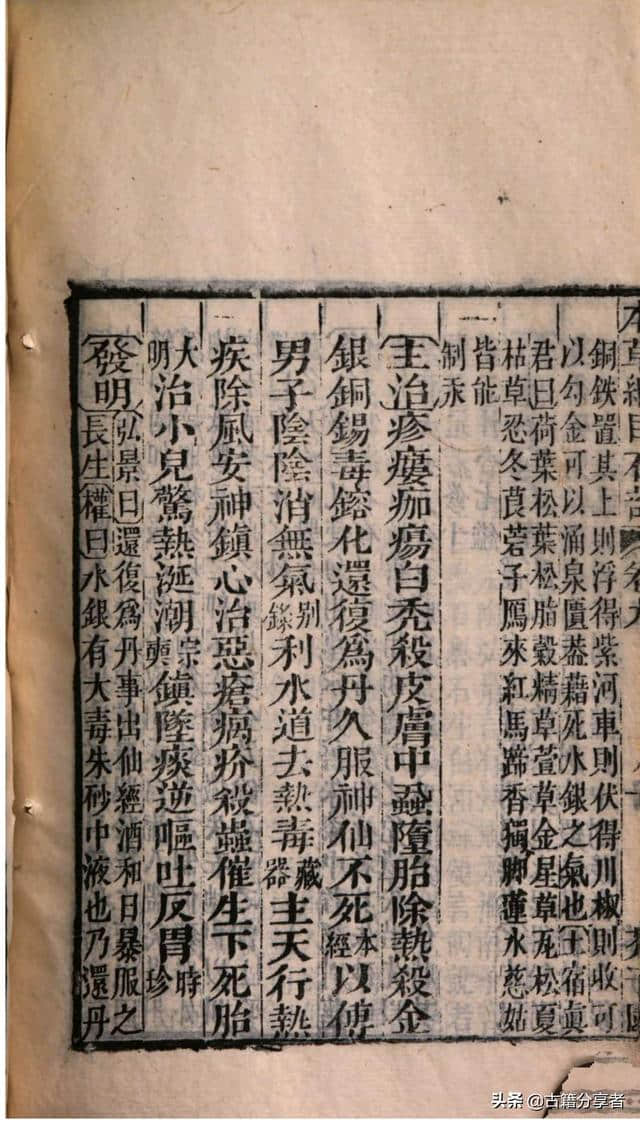 本草綱目石部
銅鉄置其上則浮得紫河車則伏得川椒則收可
以勾金可以涌泉匱葢藉死水銀之氣也土宿眞
君曰荷葉松葉松脂穀精草萱草金星草瓦松夏
枯草忍冬莨菪子鴈來紅馬蹄香獨脚蓮水慈姑
皆能
制汞
主治疹瘻痂瘍白禿殺皮膚中蝨墮胎除熱殺金
銀銅錫毒鎔化還復爲丹久服神仙不死本經以傅
男子陰陰消無氣别錄利水道去熱毒藏器主天行熱
疾除風安神鎮心治惡瘡瘑疥殺蟲催生下死胎
大明治小兒驚熱涎潮宗奭鎮墜痰逆嘔吐反胃時珍
發明弘景曰還復爲丹事出仙經酒和日暴服之
長生權曰水銀有大毒朱砂中液也乃還丹
头条 @古籍分享者